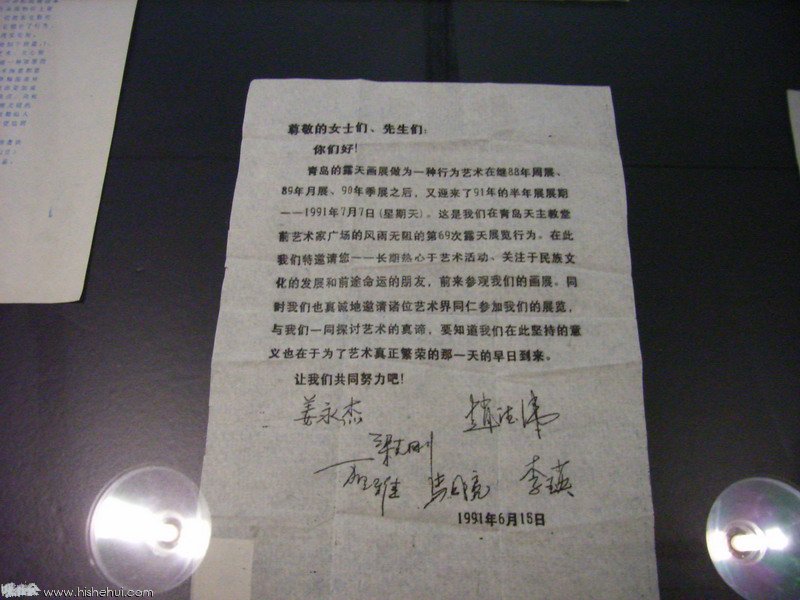 尊敬的女士们、先生们:
你们好!
青岛的露天画展做为一种行为艺术在继88年周展、
89年月展、90年季展之后，又迎来了91年的半年展展期
——1991年7月7日(星期天)。这是我们在青岛天主教堂
前艺术家广场的风雨无阻的第69次露天展览行为。在此
我们特邀请您——长期热心于艺术活动、关注于民族文
化的发展和前途命运的朋友，前来参观我们的画展。同
时我们也真诚地邀请诸位艺术界同仁参加我们的展览，
与我们一同探讨艺术的真谛，要知道我们在此坚持的意
义也在于为了艺术真正繁荣的那一天的早日到来。
让我们共同努力吧!
姜永杰
李瑛
1991年6月15日
www.hishehui.com